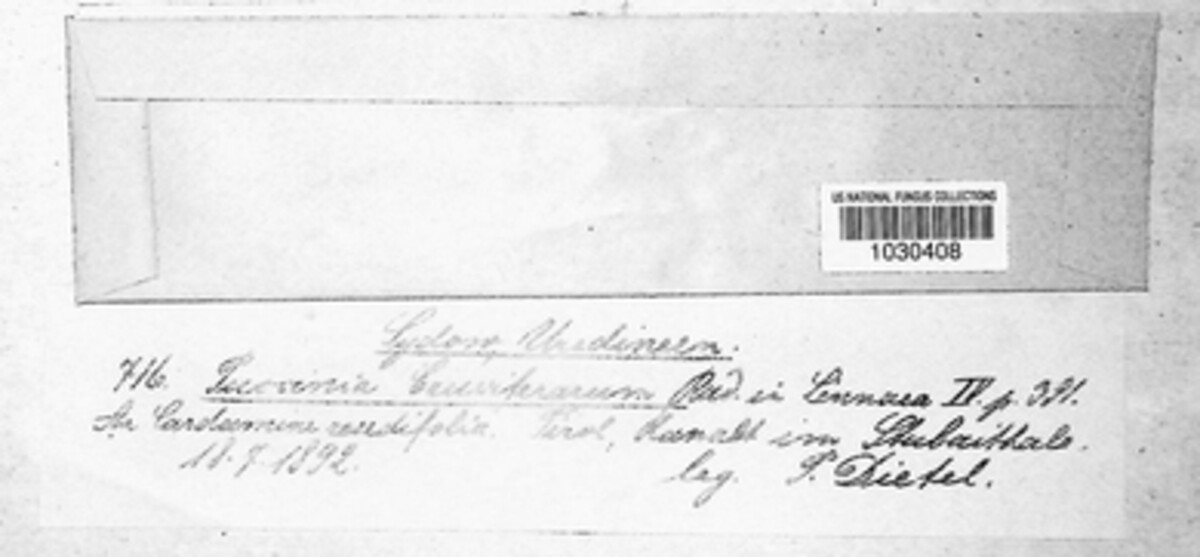 US NATIONAL FUNGUS COLLECTIONS
1030408
Sydow, Uredineen.
716. Puccinia Cruciferarum Rud. in Linnaea IV. p. 391.
An Cardamine resedifolia. Tirol, Ranalt im Stubaithale.
18.7.1892.
leg. P. Dietel.